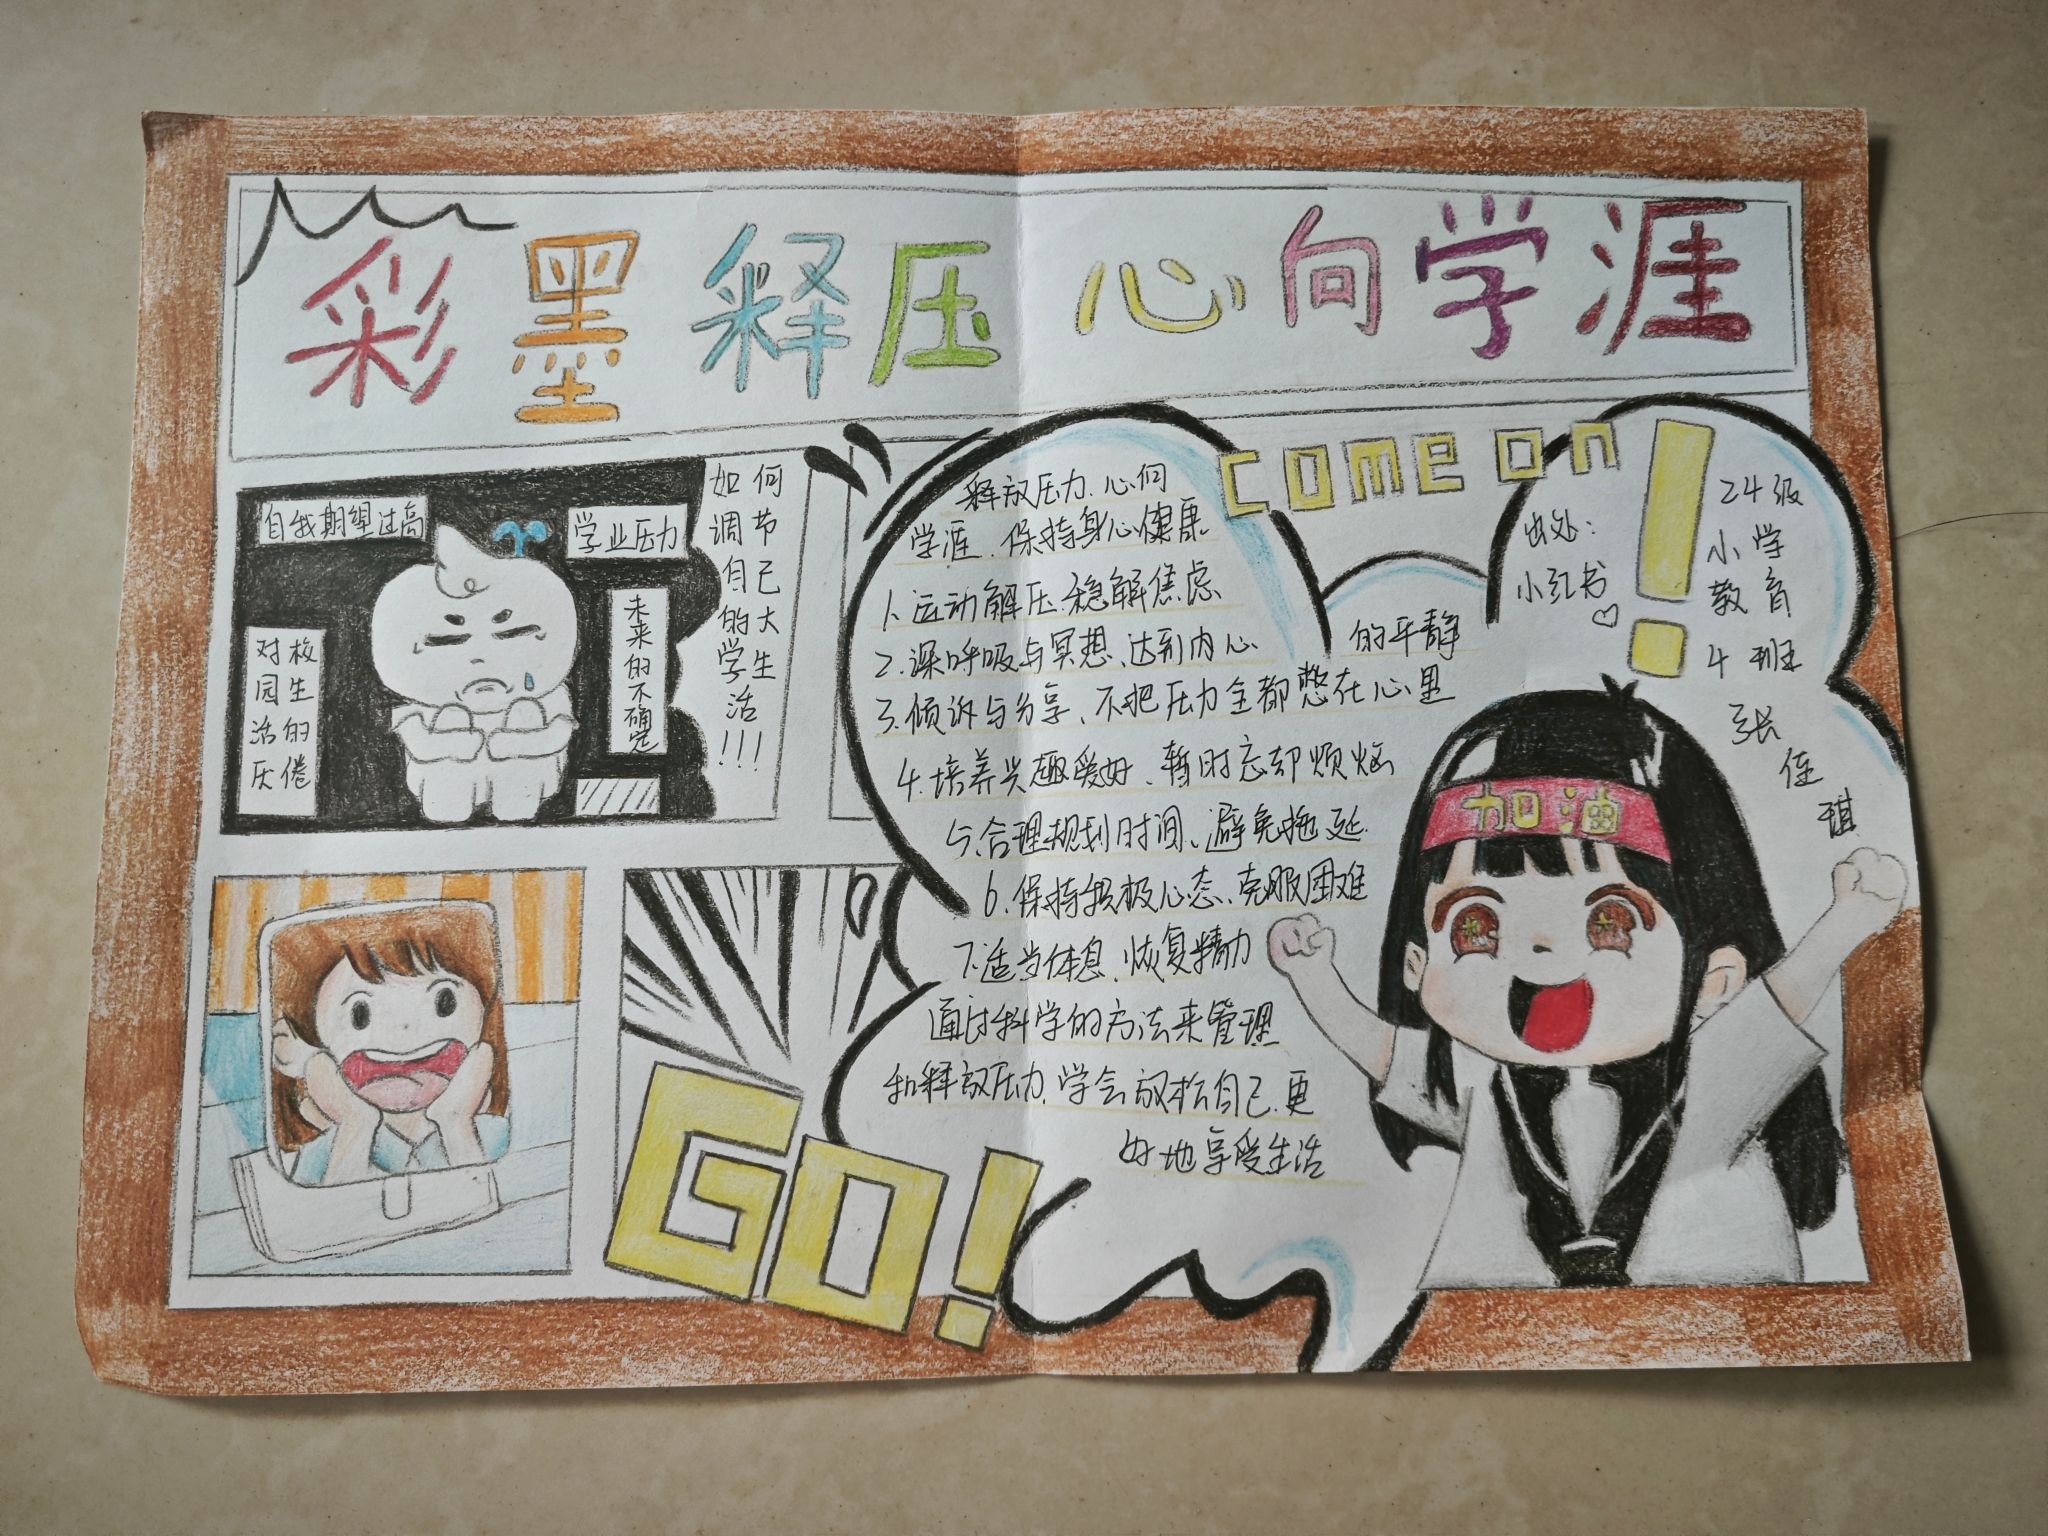 彩墨释压 心向学涯
自我期望过高
学业压力
未来的不确定
对校园生活的厌倦
如何调节自己的大学生活!!!
come on!
释放压力、心向
学涯、保持身心健康
1、运动解压、稳解焦虑
2、深呼吸与冥想、达到内心
的平静
3、倾诉与分享、不把压力全都憋在心里
4、培养兴趣爱好、暂时忘却烦恼
5、合理规划时间、避免拖延
6、保持积极心态、克服困难
7、适当休息、恢复精力
通过科学的方法来管理
和释放压力、学会放松自己、更
好地享受生活
出处:
小红书
24级
小学
教育
4班
张
佳
琪
加油
GO!